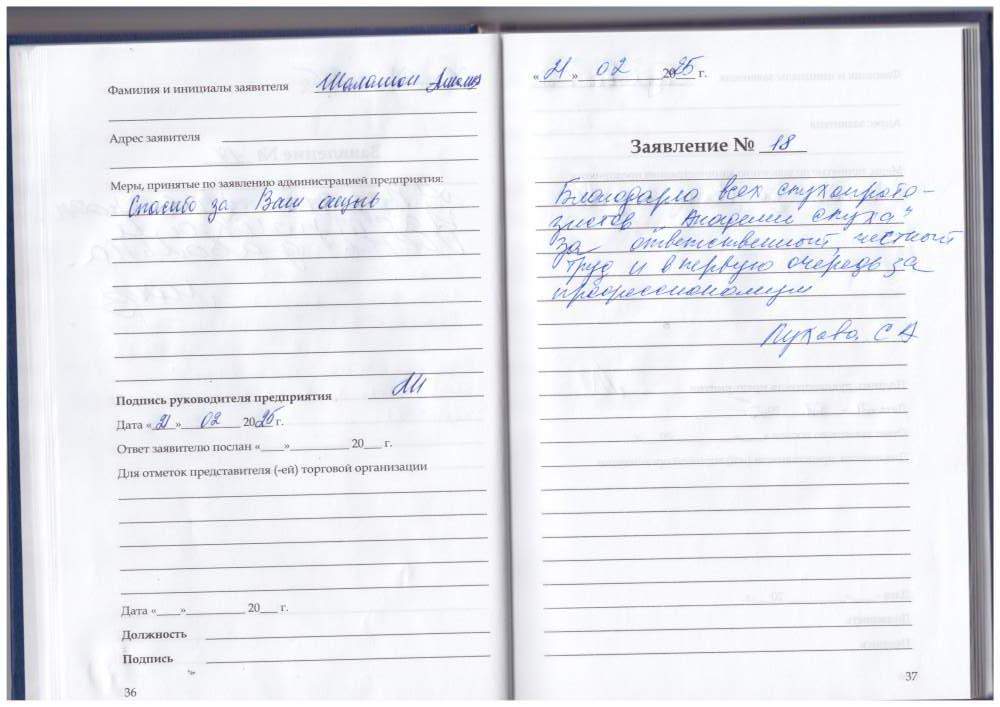 Фамилия и инициалы заявителя Шаламон
Адрес заявителя
Меры, принятые по заявлению администрацией предприятия:
Спасибо за Ваш отзыв
Подпись руководителя предприятия
Дата «21» 02 2025 г.
Ответ заявителю послан «___»__________ 20___ г.
Для отметок представителя (-ей) торговой организации
Дата «____»__________ 20___ г.
Должность
Подпись
36
«21» 02 2025 г.
Заявление № 18
Благодарю всех слухопрото-
зистов "Академии слуха"
За ответственный, честный
труд и в первую очередь за
профессионализм
С А
37